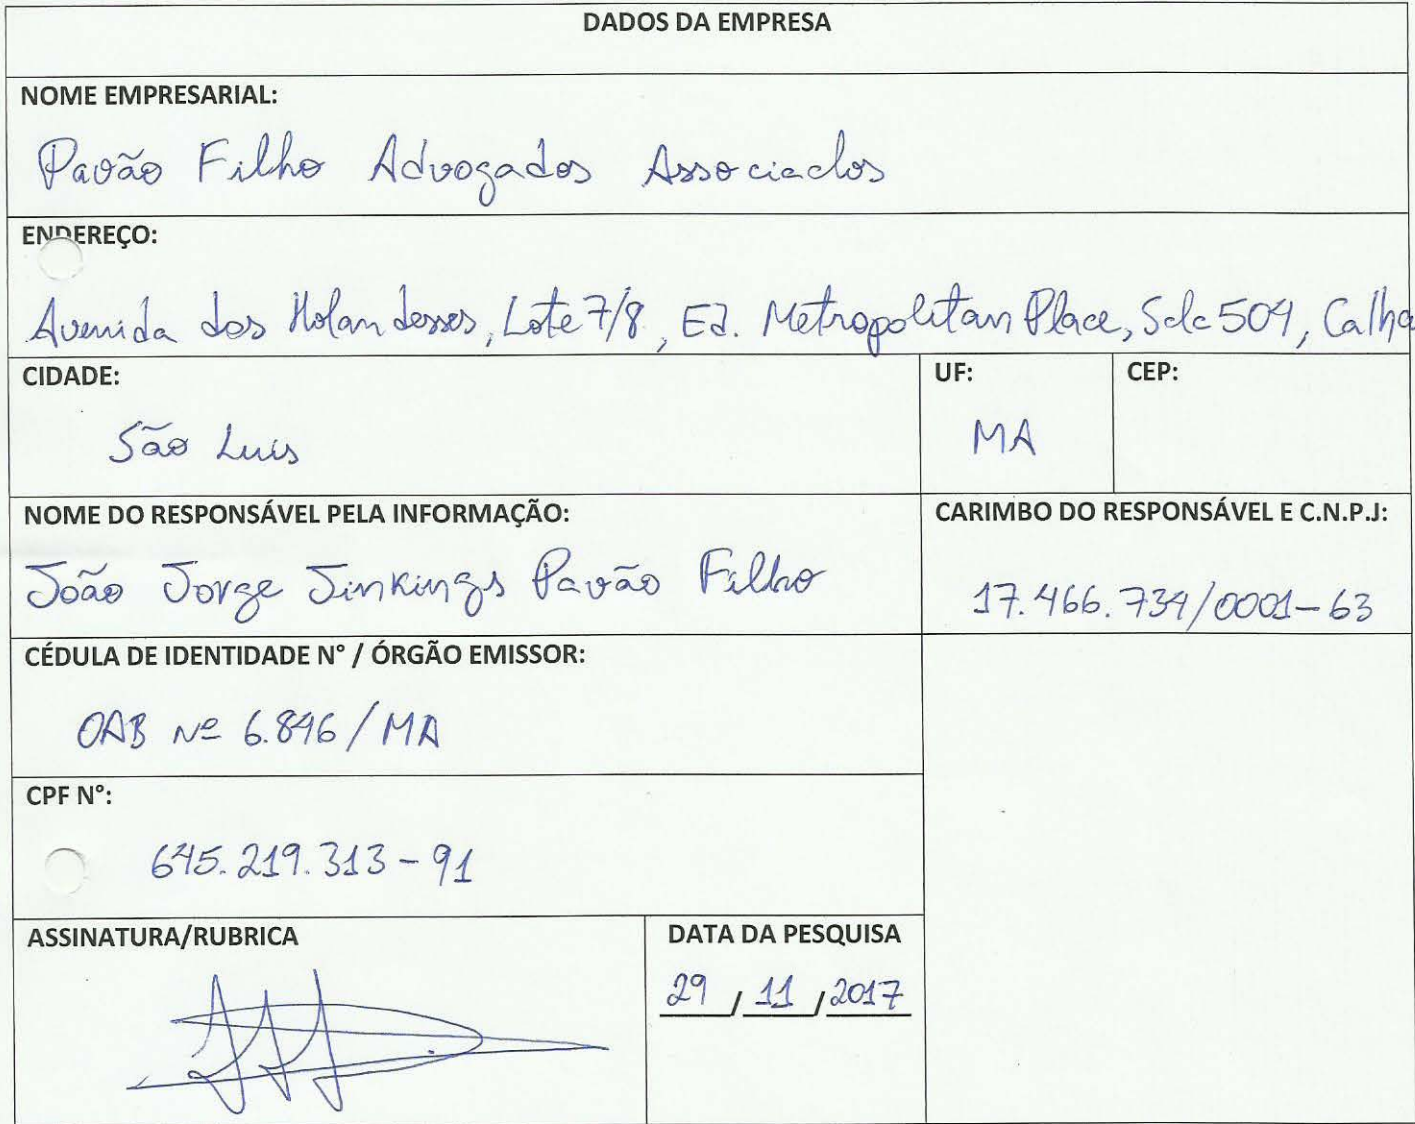 DADOS DA EMPRESA
NOME EMPRESARIAL:
Pavão Filho Advogados Associados
ENDEREÇO:
Avenida dos Holandeses, Lote 7/8, Ed. Metropolitan Place, Sala 504, Calha
CIDADE:
São Luis
UF:
MA
CEP:
NOME DO RESPONSÁVEL PELA INFORMAÇÃO:
João Jorge Jinkings Pavão Filho
CARIMBO DO RESPONSÁVEL E C.N.P.J:
17.466.734/0001-63
CÉDULA DE IDENTIDADE N° / ÓRGÃO EMISSOR:
OAB Nº 6.846/MA
CPF N°:
645.219.313-91
ASSINATURA/RUBRICA
DATA DA PESQUISA
29 / 11 / 2017